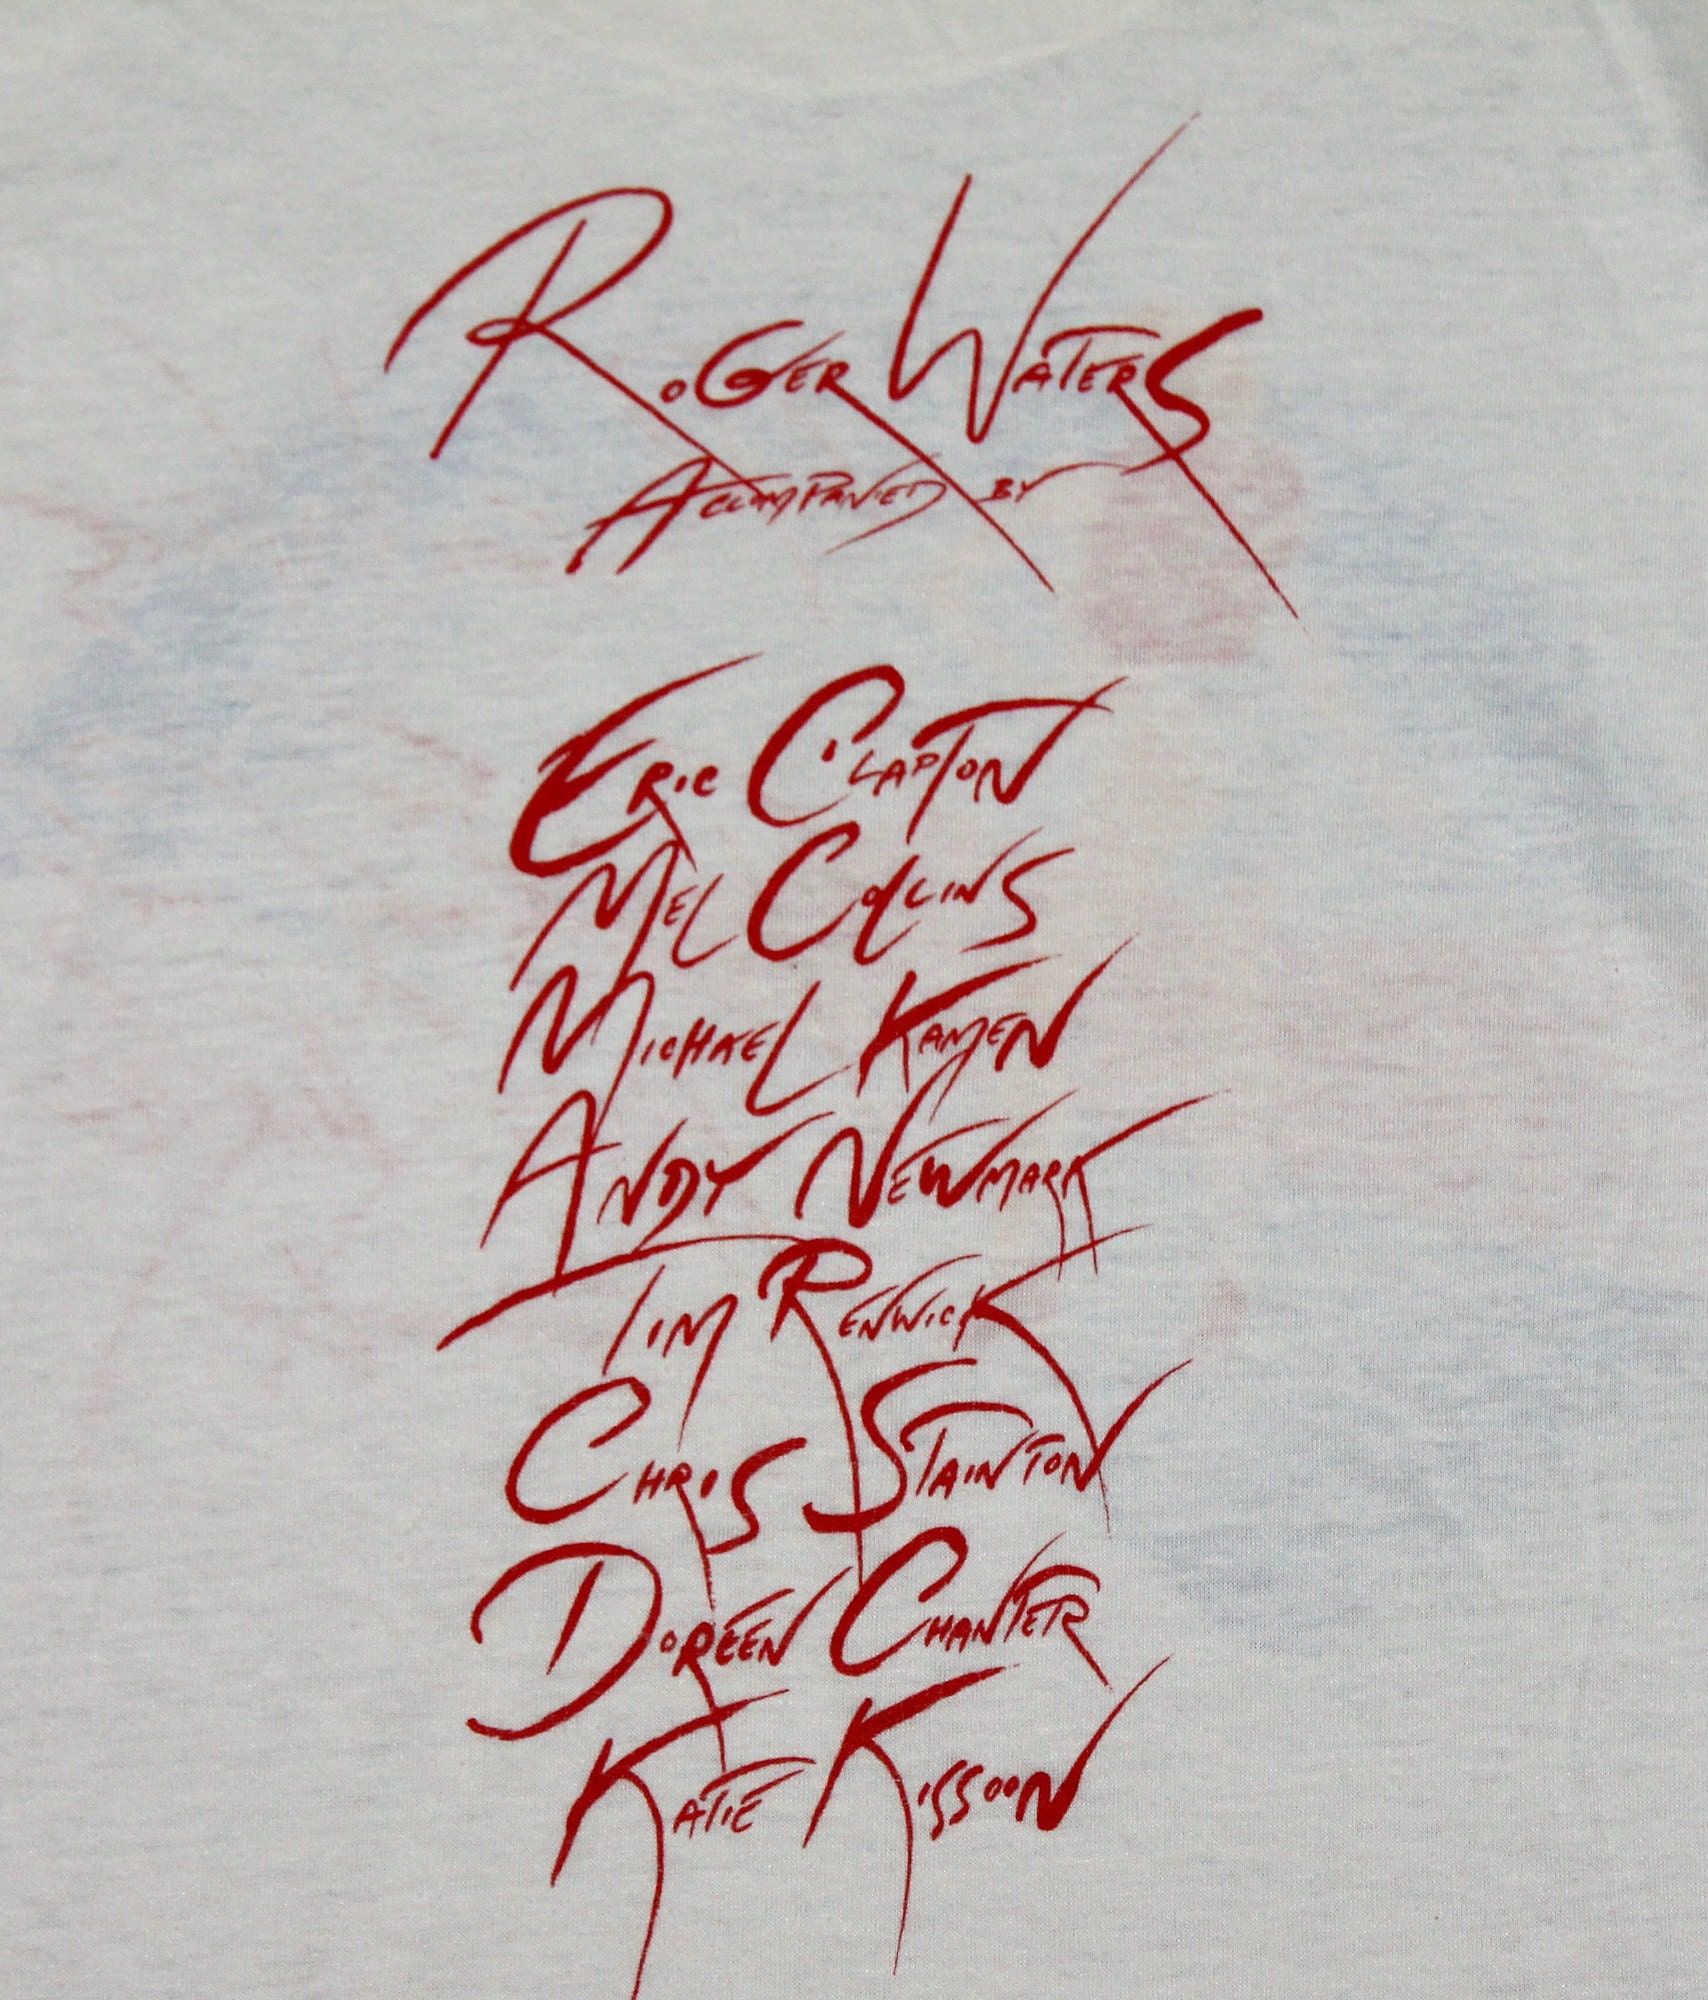 Roger Waters
Accompanied by
Eric Clapton
Mel Collins
Michael Kamen
Andy Newmark
Tim Renwick
Chris Stainton
Doreen Chanter
Katie Kissoon